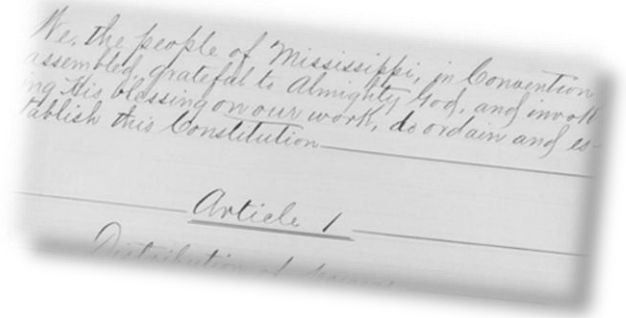 We, the people of Mississippi, in Convention
assembled, grateful to Almighty God, and invok
ing His blessing on our work, do ordain and es-
tablish this Constitution
Article 1
Distribution of Powers